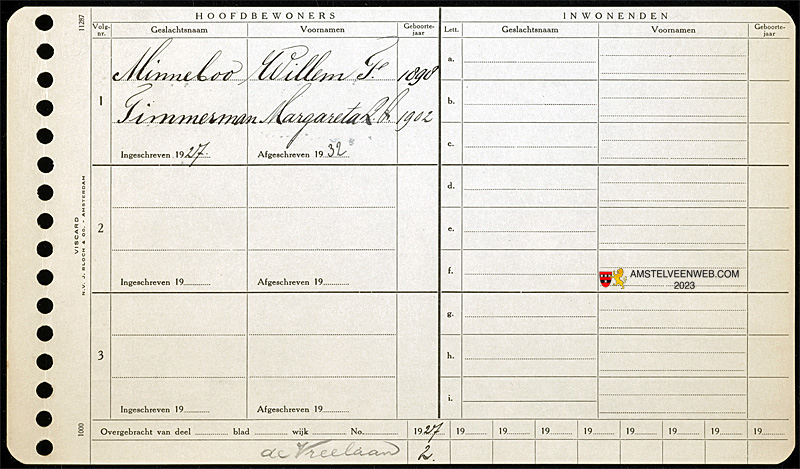 HOOFDBEWONERS
INWONENDEN
11287
Volg-nr. Geslachtsnaam Voornamen Geboorte-jaar
Lett. Geslachtsnaam Voornamen Geboorte-jaar
1
Minneboo Willem F. 1898
Timmerman Margareta 1902
Ingeschreven 1927. Afgeschreven 1932
2
Ingeschreven 19 Afgeschreven 19
3
Ingeschreven 19 Afgeschreven 19
a.
b.
c.
d.
e.
f.
g.
h.
i.
AMSTELVEENWEB.COM
2023
VISCARD
N.V. J. BLOCH & CO. - AMSTERDAM
1000
Overgebracht van deel blad wijk No. 1927 19 19 19 19 19 19 19 19
de Vreelaan 2.